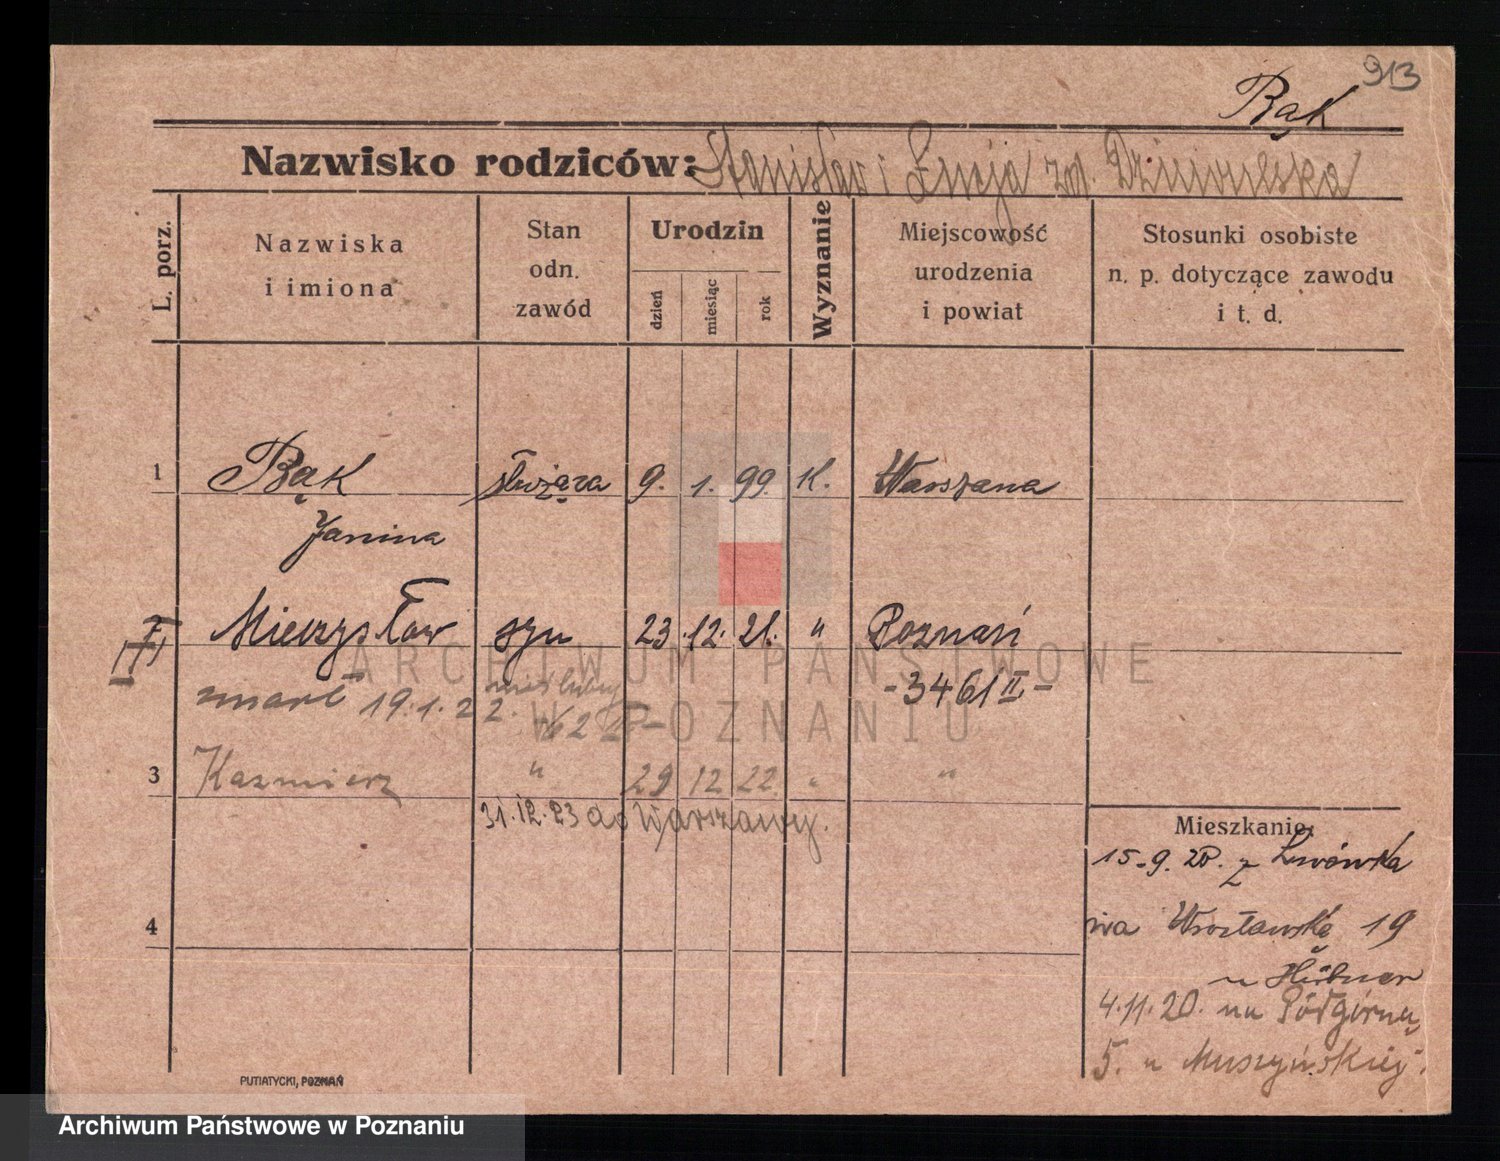 913
Bąk
Nazwisko rodziców: Stanisław i Łucja
L. porz.
Nazwiska i imiona
Stan odn. zawód
Urodzin
dzień
miesiąc
rok
Wyznanie
Miejscowość urodzenia i powiat
Stosunki osobiste n. p. dotyczące zawodu i t. d.
1 Bąk służąca 9. 1. 99. K. Warszawa
Janina
Mieczysław syn 23. 12. 21. " Poznań
zmarł 19.1.22. -3461 II-
3 Kazmierz " 29 12 22 " "
31.12.23 do Warszawy.
Mieszkanie:
15.9.20. z Lwówka
na Wrocławską 19
u Hübner
4.11.20. na Podgórną
5. u Muszyńskiej.
4
PUTIATYCKI, POZNAŃ
ARCHIWUM PAŃSTWOWE
W POZNANIU
Archiwum Państwowe w Poznaniu